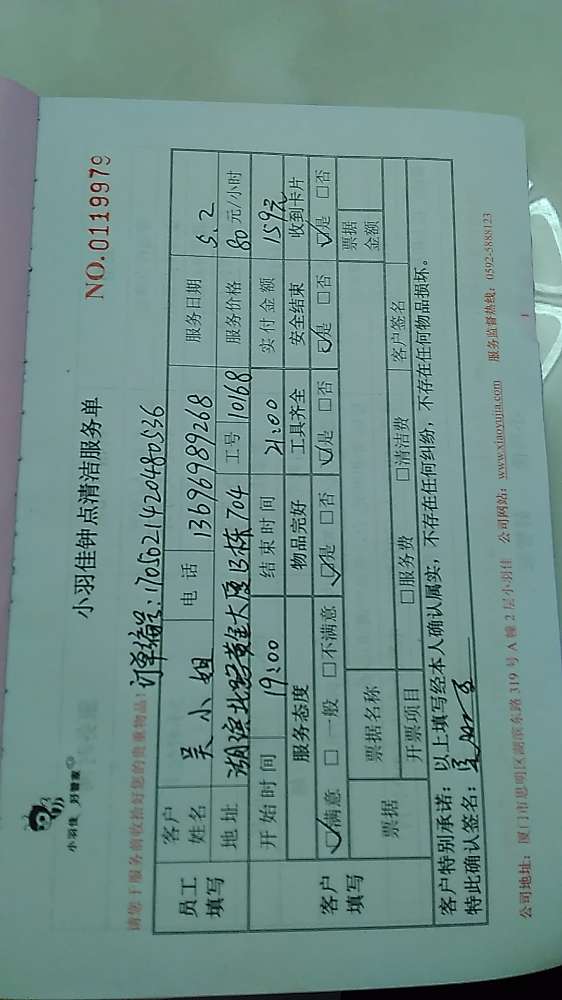 小羽佳 好管家
小羽佳钟点清洁服务单
NO.0119979
请您于服务前收拾好您的贵重物品! 订单编号:170502142048053​6
员工填写
客户姓名 吴小姐 电话 13696989268 服务日期 5.2
地址 湖滨北路黄金大厦B栋704 工号 10168 服务价格 80元/小时
开始时间 19:00 结束时间 21:00 实付金额 159元
客户填写
服务态度 物品完好 工具齐全 安全结束 收到卡片
☑满意 □一般 □不满意 ☑是 □否 ☑是 □否 ☑是 □否 ☑是 □否
票据 票据名称 票据金额
开票项目 □服务费 □清洁费 客户签名
客户特别承诺:以上填写经本人确认属实,不存在任何纠纷,不存在任何物品损坏。
特此确认签名:
公司地址:厦门市思明区湖滨东路319号A幢2层小羽佳 公司网站:www.xiaoyujia.com 服务监督热线:0592-5888123